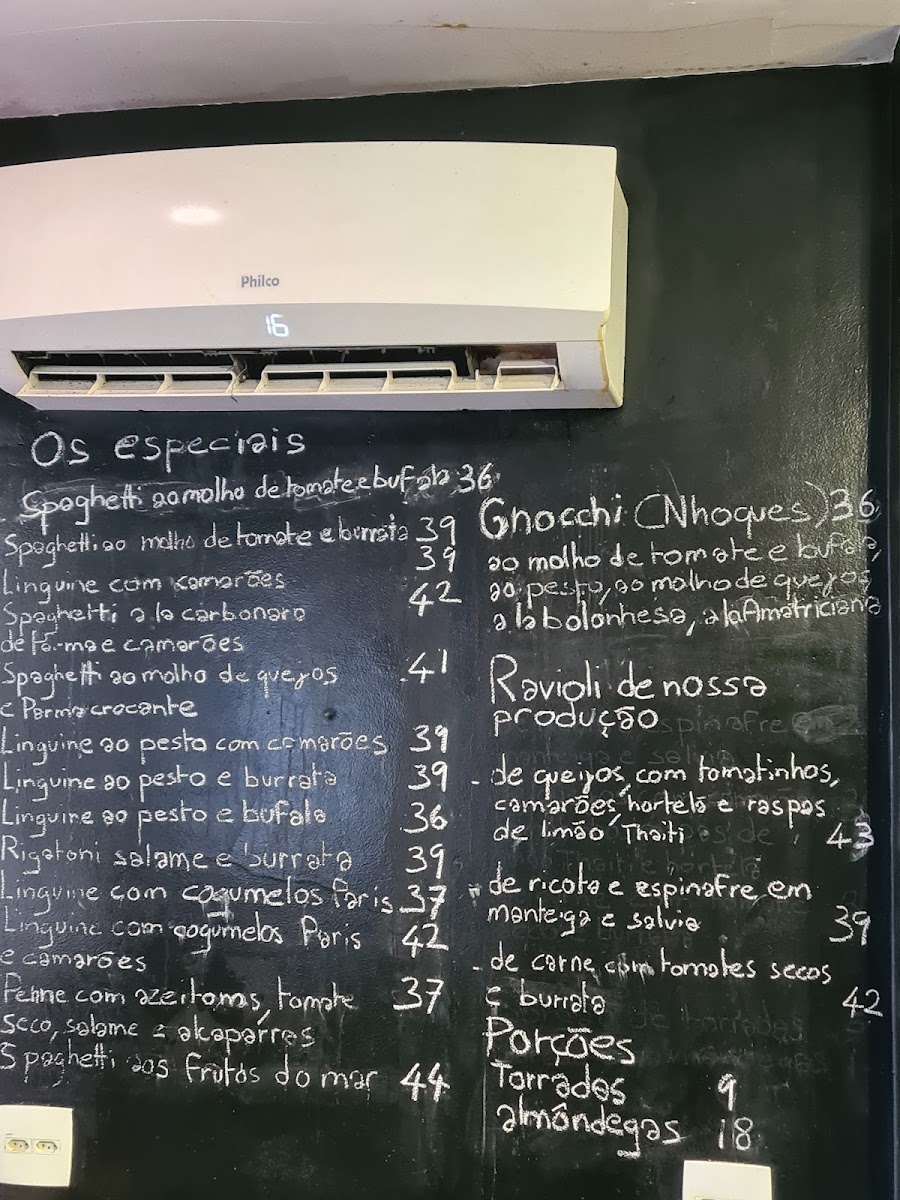 Philco
16
Os especiais
Spaghetti ao molho de tomate e bufala 36
Spaghetti ao molho de tomate e burrata 39
39
Linguine com camarões
Spaghetti a la carbonara 42
de Parma e camarões
Spaghetti ao molho de queijos 41
e Parma crocante
Linguine ao pesto com camarões 39
Linguine ao pesto e burrata 39
Linguine ao pesto e bufala 36
Rigatoni salame e burrata 39
Linguine com cogumelos Paris 37
Linguine com cogumelos Paris 42
e camarões
Penne com azeitonas, tomate 37
seco, salame e alcaparras
Spaghetti aos frutos do mar 44
Gnocchi (Nhoques) 36
ao molho de tomate e bufala,
ao pesto, ao molho de queijos
a la bolonhesa, a la Amatriciana
Ravioli de nossa
produção
- de queijos, com tomatinhos,
camarões, hortelã e raspas
de limão Thaiti 43
- de ricota e espinafre em
manteiga e salvia 39
- de carne com tomates secos
e burrata 42
Porções
Torradas 9
almôndegas 18